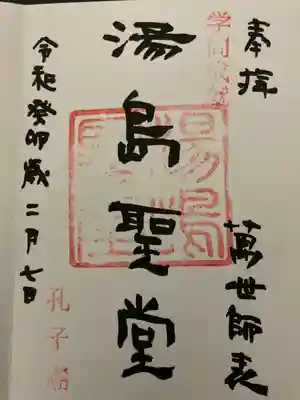 奉拝
萬世師表
学問成就
湯島聖堂
湯島聖堂
令和癸卯歳二月七日
孔子廟